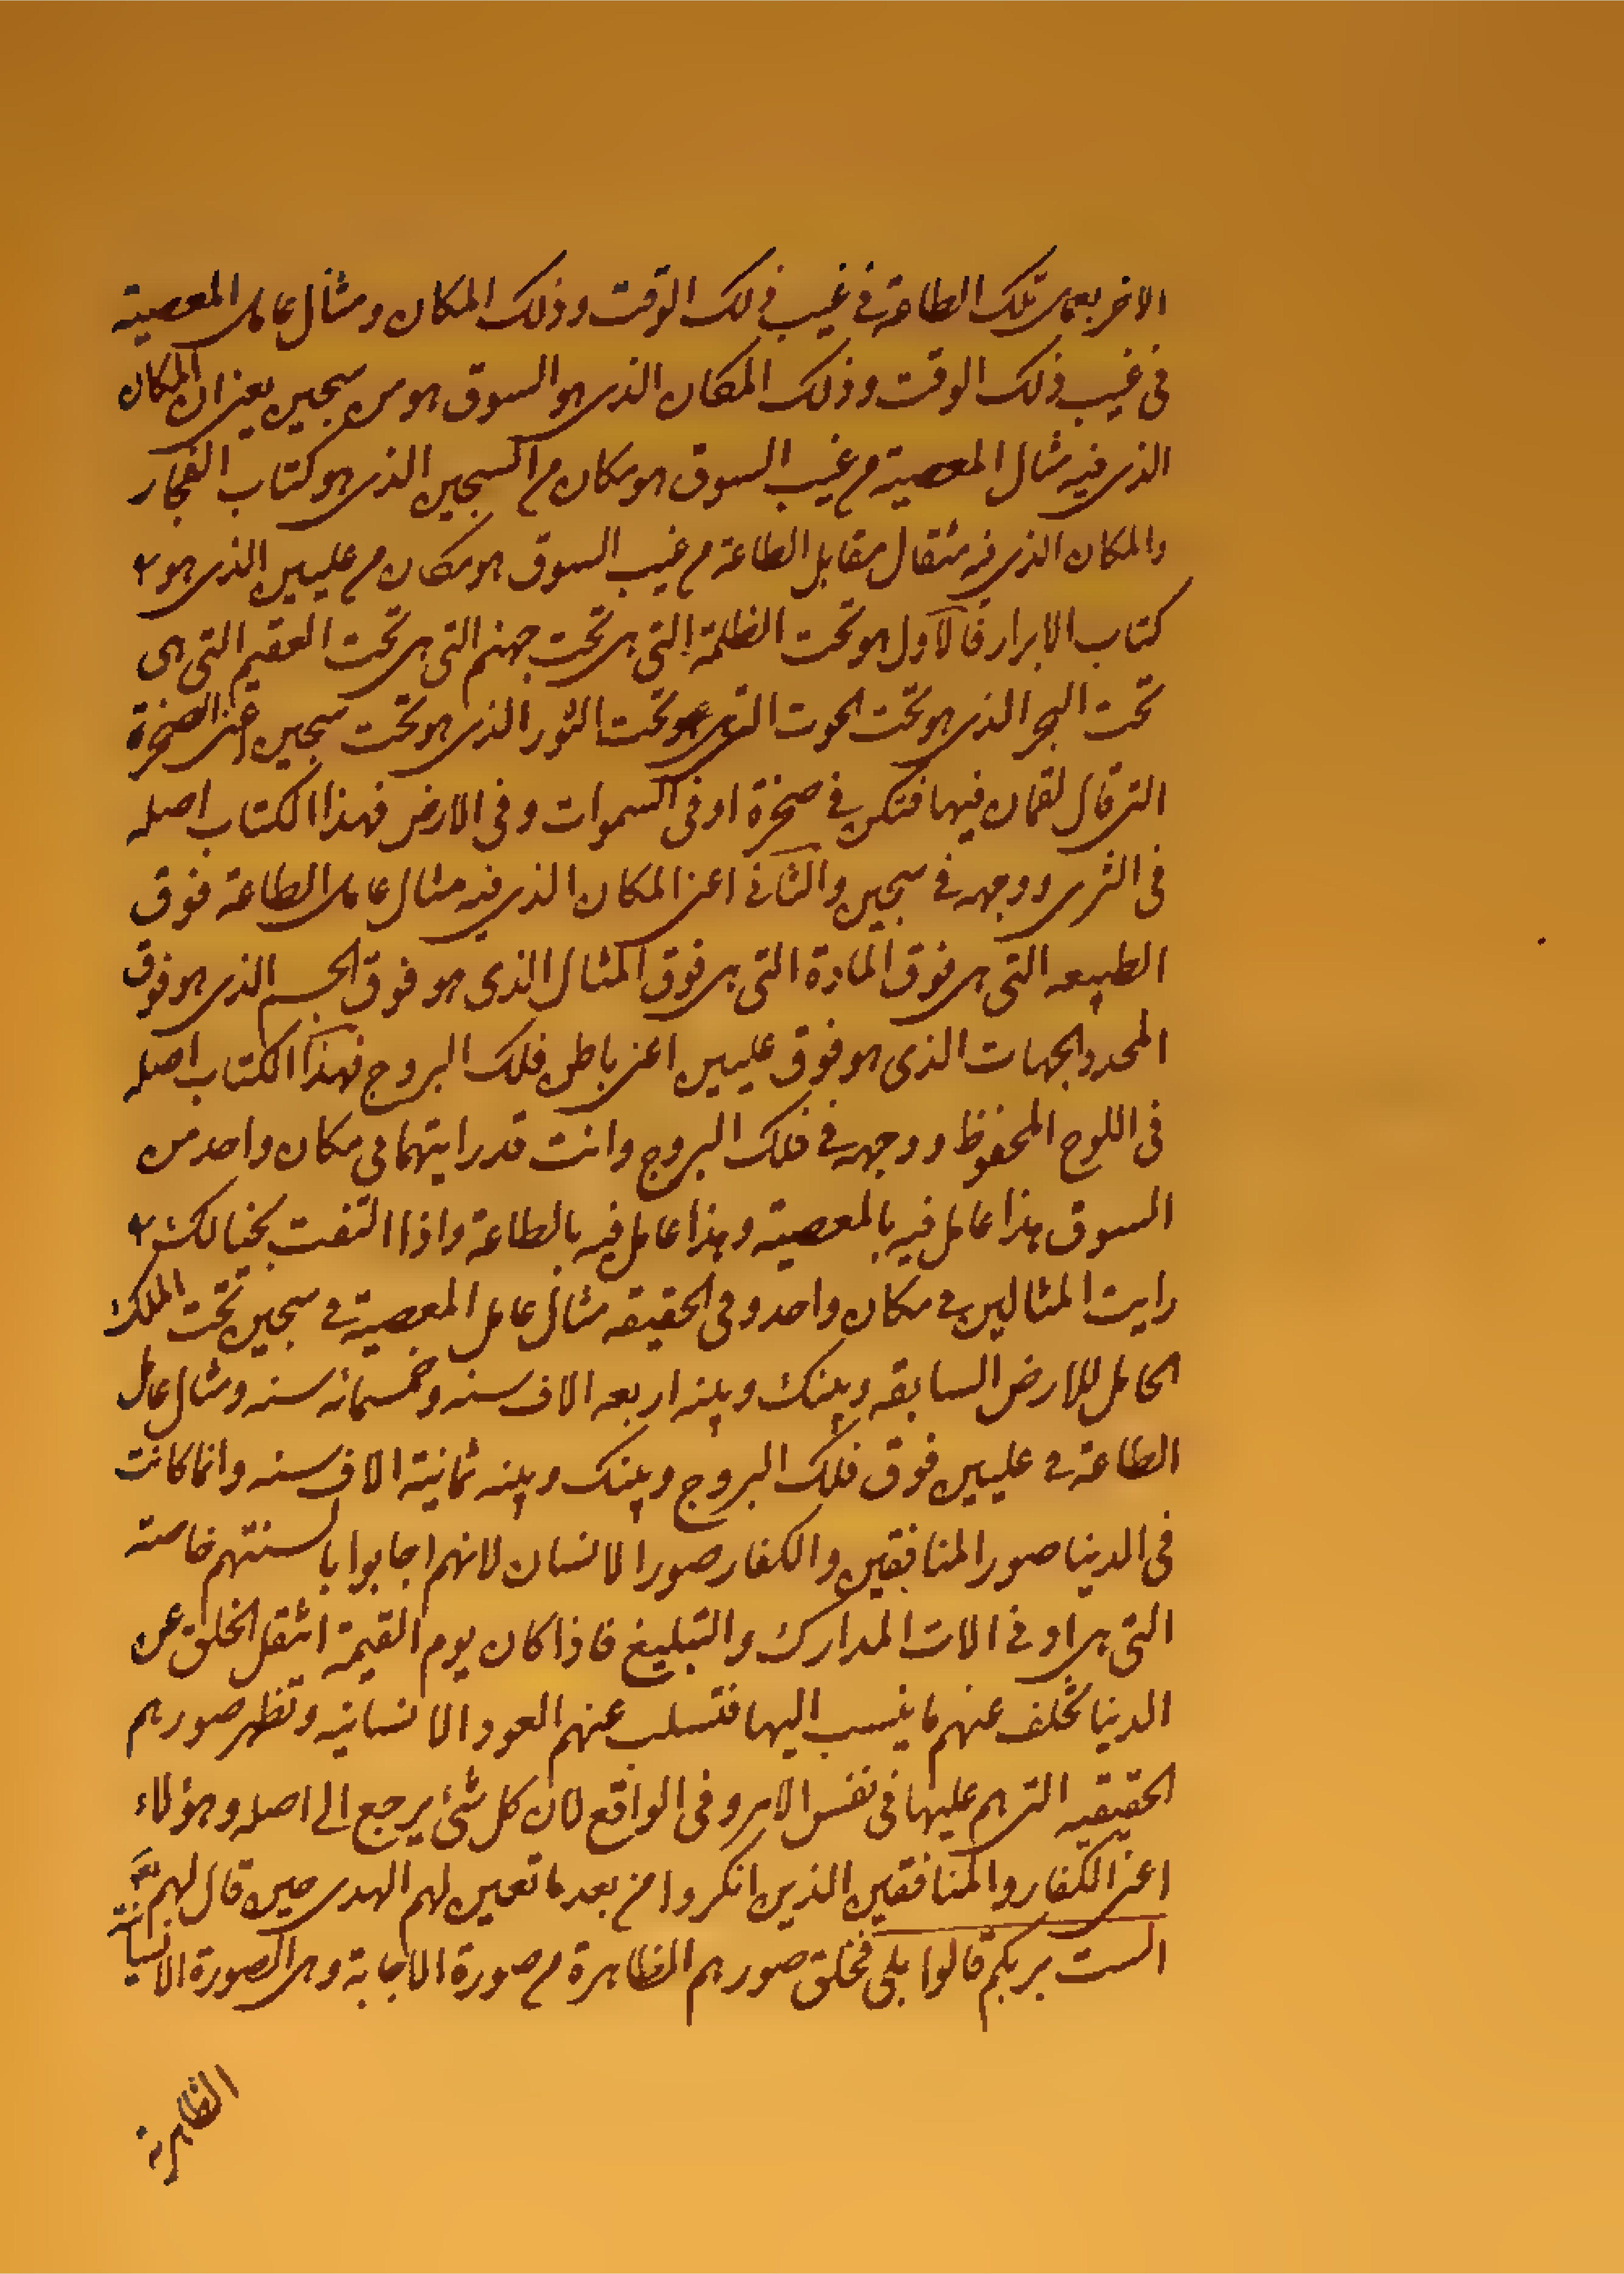 الاخر بعمل تلك الطاعة في غيب ذلك الوقت وذلك المكان ومثال عامل المعصية
في غيب ذلك الوقت وذلك المكان الذي هو السوق هو من سجين يعني ان المكان
الذي فيه مثال المعصية م غيب السوق هو مكان م السجين الذي هو كتاب الفجار
والمكان الذي فيه مثقال مقابل الطاعة م غيب السوق هو مكان م عليين الذي هو
كتاب الابرار فالاول هو تحت الظلمة التي هي تحت جهنم التي هي تحت العقيم التي هي
تحت البحر الذي هو تحت الحوت الذي هو تحت الثور الذي هو تحت سجين اعني الصخرة
التي قال لقمان فيها فتكن في صخرة او في السموات وفي الارض فهذا الكتاب اصله
في الثرى ووجهه في سجين والثاني اعني المكان الذي فيه مثال عامل الطاعة فوق
الطبيعه التي هي فوق المادة التي هي فوق المثال الذي هو فوق الجسم الذي هو فوق
المحدد الجهات الذي هو فوق عليين اعني باطن فلك البروج فهذا الكتاب اصله
في اللوح المحفوظ ووجهه في فلك البروج وانت قد رايتهما في مكان واحد من
السوق هذا عامل فيه بالمعصية وهذا عامل فيه بالطاعة واذا التفت بخيالك
رايت المثالين في مكان واحد وفي الحقيقه مثال عامل المعصية في سجين تحت الملك
الحامل للارض السابقه وبينك وبينه اربعه الاف سنه وخمسمائه سنه ومثال عامل
الطاعة في عليين فوق فلك البروج وبينك وبينه ثمانية الاف سنه وانما كانت
في الدنيا صور المنافقين والكفار صور الانسان لانهم اجابوا بالسنتهم خاصته
التي هي اوفي الات المدارك والتبليغ فاذا كان يوم القيمة انتقل الخلق عن
الدنيا تخلف عنهم ما ينسب اليها فتسلب عنهم العود الانسانيه وتظهر صورهم
الحقيقيه التي هم عليها في نفس الامر وفي الواقع لان كل شئ يرجع الى اصله وهؤلاء
اعني الكفار والمنافقين الذين انكروا من بعد ما تعين لهم الهدى حين قال لهم
الست بربكم قالوا بلى فخلق صورهم الظاهرة م صورة الاجابة وهي الصورة الانسانية
الظاهرة